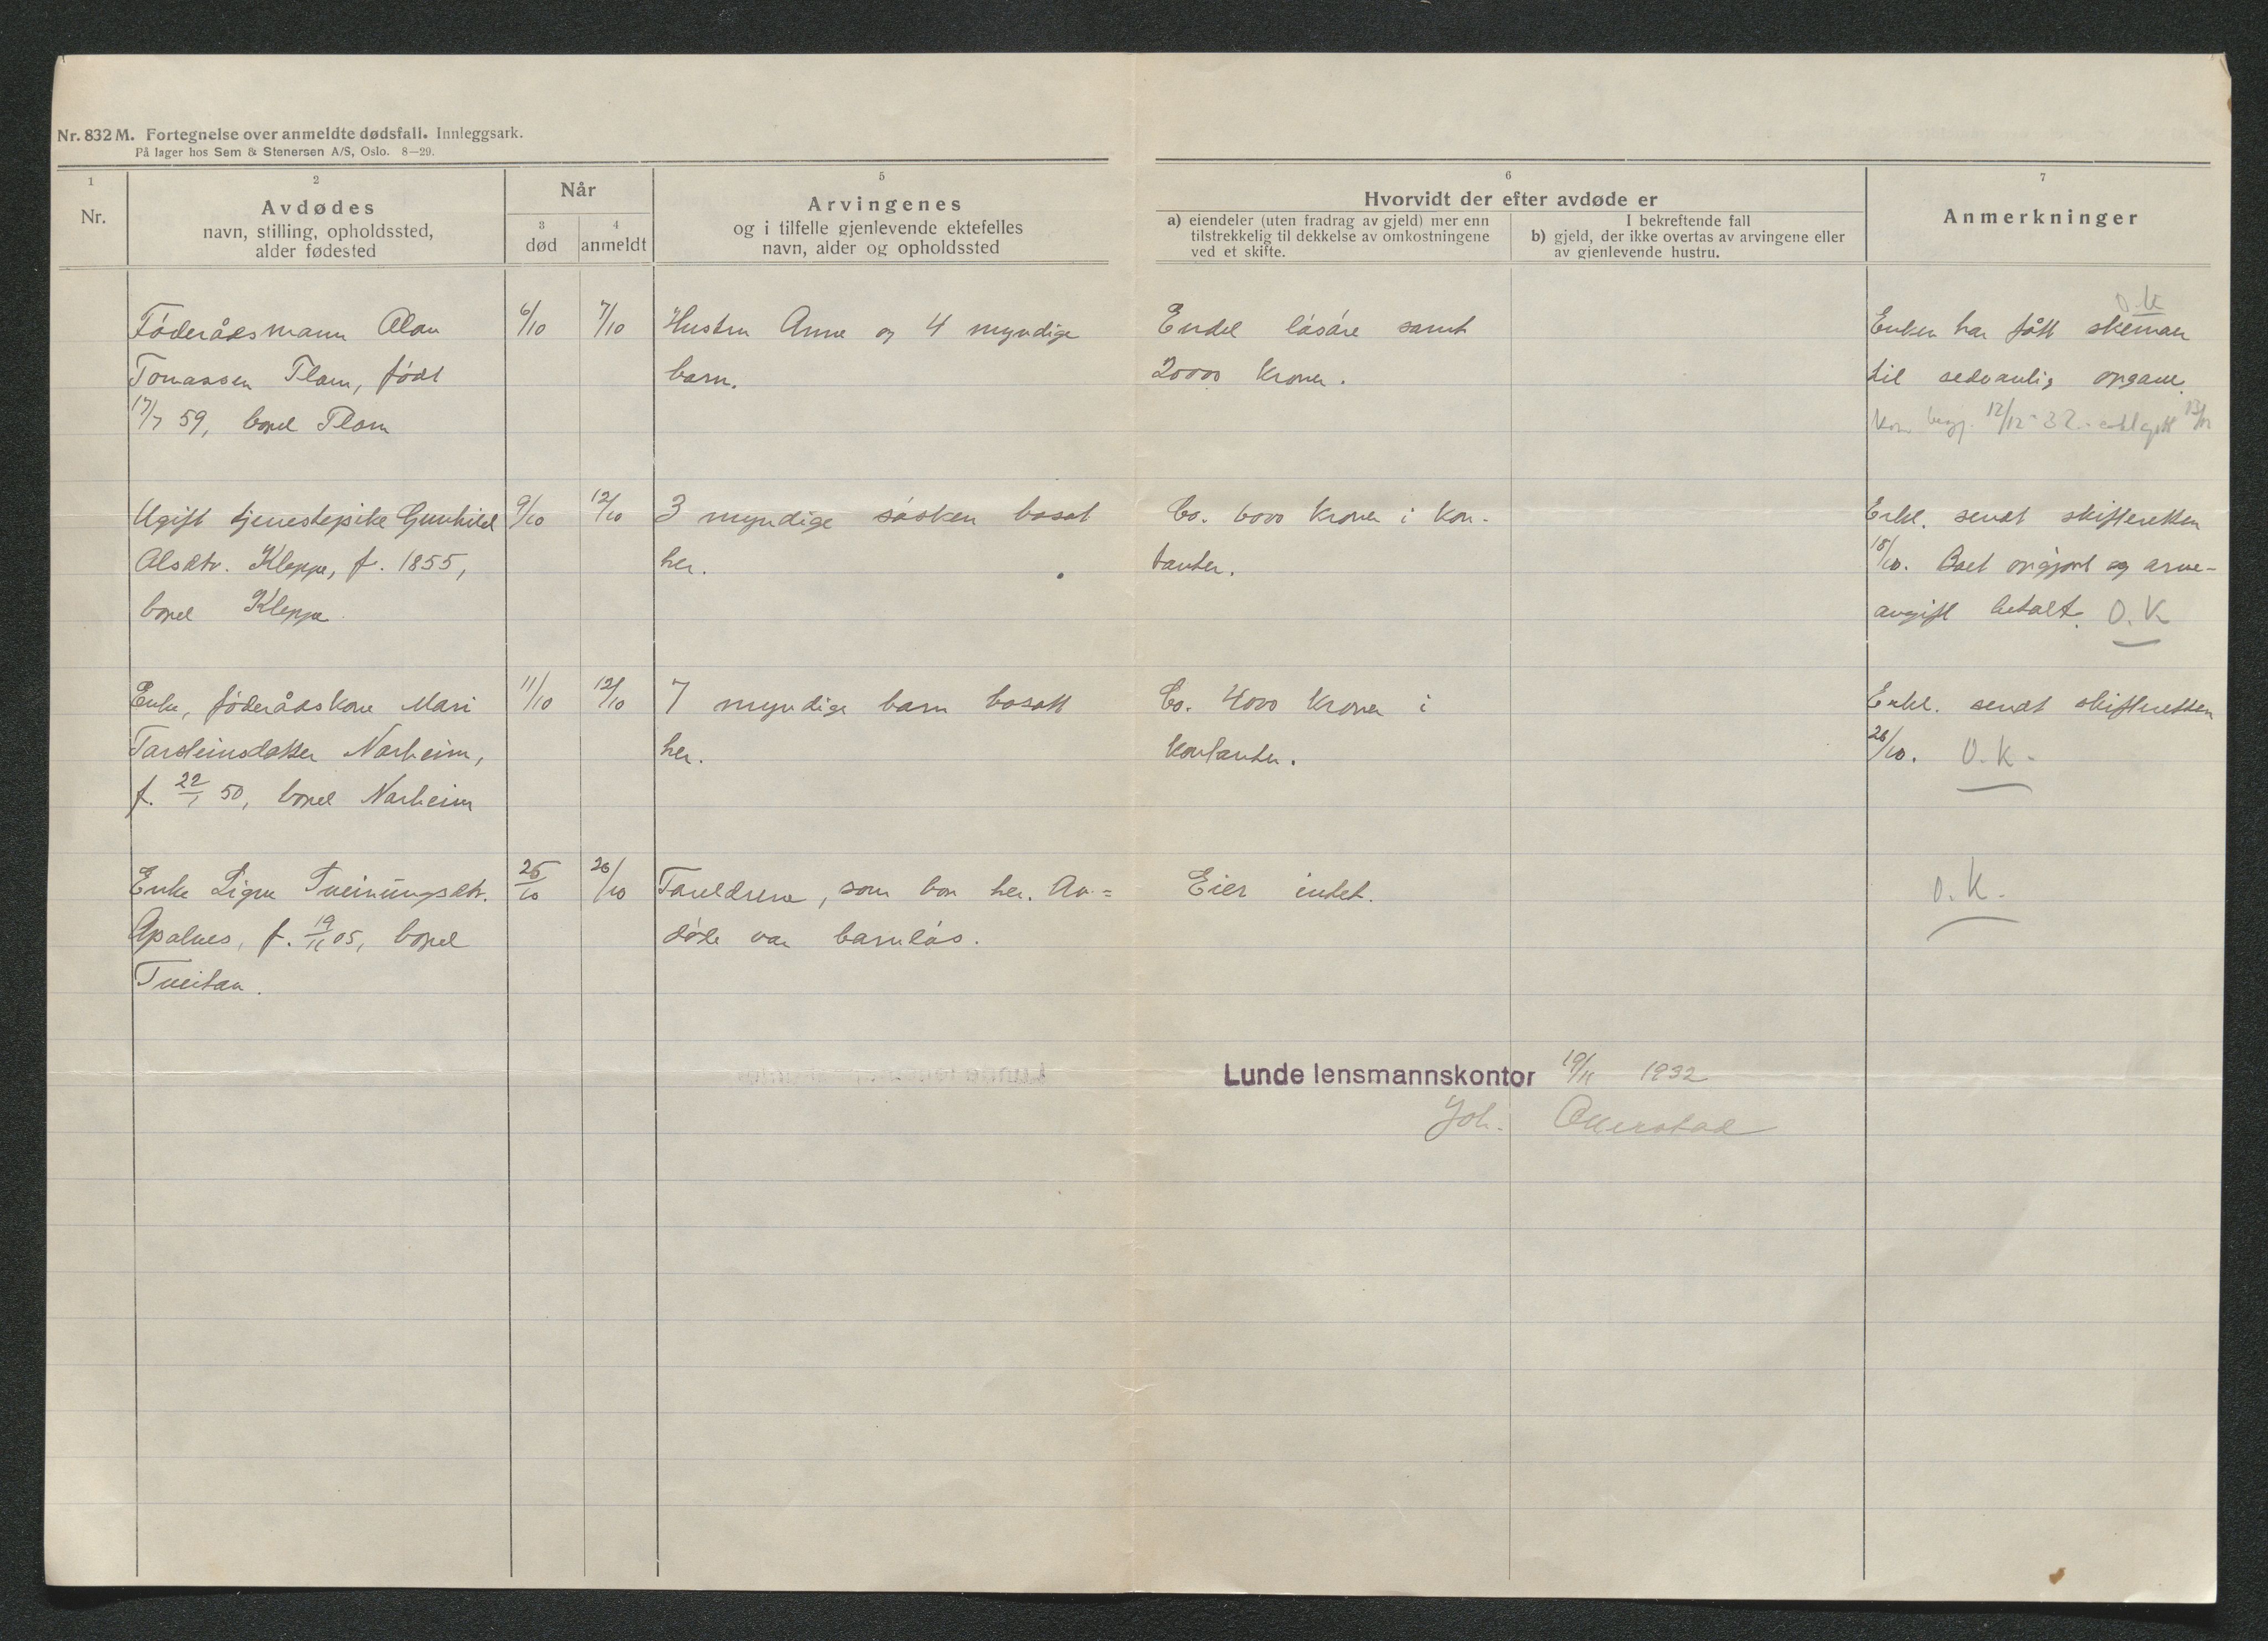 Nr. 832 M. Fortegnelse over anmeldte dødsfall. Innleggsark.
På lager hos Sem & Stenersen A/S, Oslo. 8—29.
1
Nr.
2
Avdødes
navn, stilling, opholdssted,
alder fødested
Når
3
død
4
anmeldt
5
Arvingenes
og i tilfelle gjenlevende ektefelles
navn, alder og opholdssted
6
Hvorvidt der efter avdøde er
a) eiendeler (uten fradrag av gjeld) mer enn
tilstrekkelig til dekkelse av omkostningene
ved et skifte.
I bekreftende fall
b) gjeld, der ikke overtas av arvingene eller
av gjenlevende hustru.
7
Anmerkninger
Føderådsmann Olav 6/10 7/10 Hustru Anne og 4 myndige Endel løsøre samt Enken har fått skemaer O.K
Tomassen Flom, født barn. 20000 kroner. til sedvanlig opgave.
17/7 59, bopel Flom 12/12-32
Ugift tjenestepike Gunhild 9/10 12/10 3 myndige søsken bosat Co. 6000 kroner i kon-
Olsdtr. Kleppe, f. 1855, her. tanter.
bopel Kleppe
Erkl. sendt skifteretten
18/10. Boet opgjort og arve-
avgift betalt. O.K
Enke, føderådskone Mari 11/10 12/10 7 myndige barn bosatt Co. 4000 kroner i Erkl. sendt skifteretten
Tarsteinsdatter Narheim, her. kontanter. 26/10. O.K.
f. 22/1 50, bopel Narheim
Enke Signe Tveinungsdtr. 25/10 26/10 Foreldrene, som bor her. Av= Eier intet. O.K.
Apalnes, f. 19/11 05, bopel døde var barnløs.
Tveitan.
Lunde lensmannskontor 19/11 1932
Joh. Åkerstad